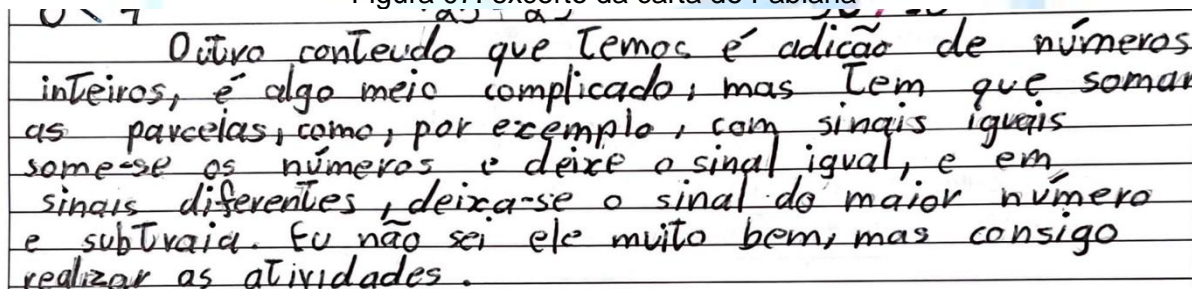 Outro conteudo que temos é adição de números
inteiros, é algo meio complicado, mas tem que somar
as parcelas, como, por exemplo, com sinais iguais
some-se os números e deixe o sinal igual, e em
sinais diferentes, deixa-se o sinal do maior número
e subtraia. Eu não sei ele muito bem, mas consigo
realizar as atividades.